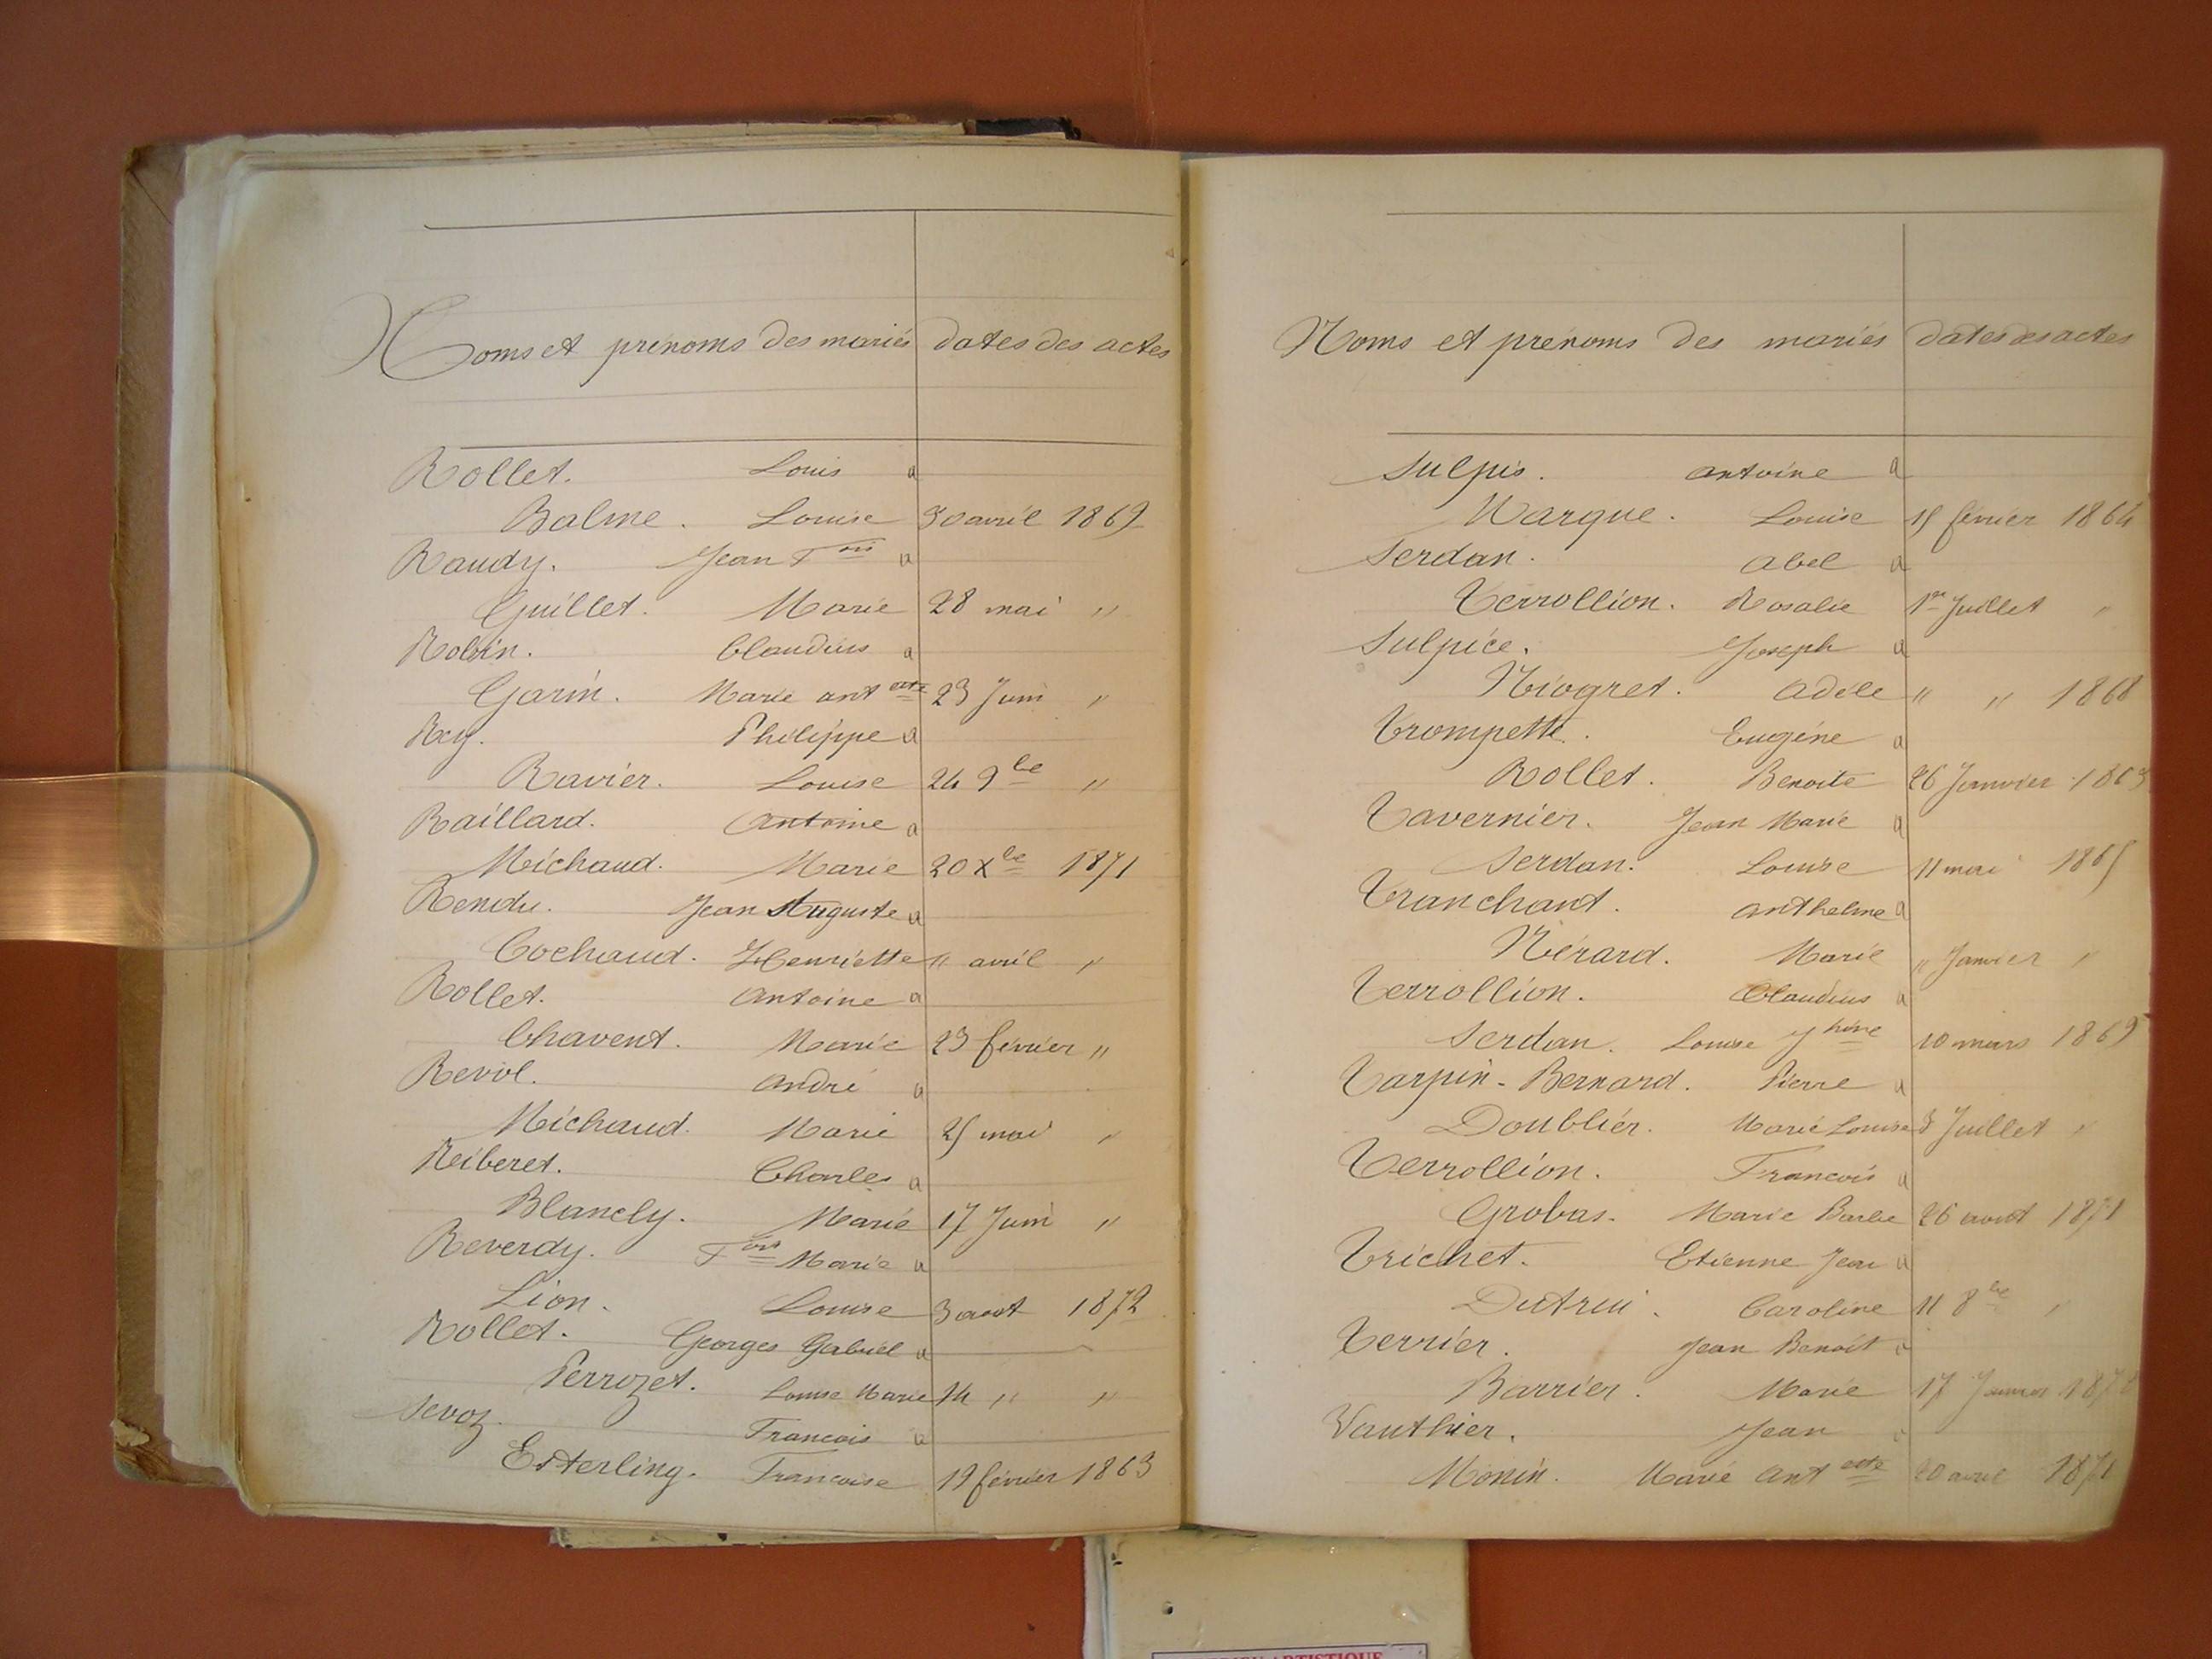 Noms et prénoms des mariés dates des actes
Rollet. Louis a
Balme. Louise 30 avril 1869
Raudy. Jean Fois a
Guillet. Marie 28 mai "
Robin. Claudius a
Garin. Marie antette 23 Juin "
Rey. Philippe a
Ravier. Louise 24 9bre "
Raillard. Antoine a
Michaud. Marie 20 Xbre 1871
Rendu. Jean Auguste a
Cochaud. Henriette 11 avril "
Rollet. Antoine a
Chavent. Marie 23 février "
Revol. André a
Michaud. Marie 25 mai "
Reiberet. Charles a
Blancly. Marie 17 Juin "
Reverdy. Fois Marie a
Lion. Louise 3 aout 1872
Rollet. Georges Gabriel a
Perrozet. Louise Marie 14 " "
Sevoz. Francois a
Esterling. Francoise 19 février 1863
Noms et prénoms des mariés dates des actes
Sulpis. antoine a
Wargue. Louise 15 février 1864
Serdan. Abel a
Terrollion. Rosalie 1er Juillet "
Sulpice. Joseph a
Niogret. Adèle " " 1868
Trompette. Eugène a
Rollet. Benoite 26 Janvier 1863
Tavernier. Jean Marie a
Serdan. Louise 11 mai 1865
Tranchant. Anthelme a
Nérard. Marie " Janvier "
Terrollion. Claudius a
Serdan. Louise Jhine 10 mars 1869
Tarpin-Bernard. Pierre a
Doublier. Marie Louise 3 Juillet "
Terrollion. Francois a
Grobas. Marie Barbe 26 aout 1871
Trichet. Etienne Jean a
Dutrui. Caroline 11 8bre "
Terrier. Jean Benoit a
Barrier. Marie 17 Janvier
Vauthier. Jean a
Monin. Marie Antette 20 avril 1871
ARTISTIQUE